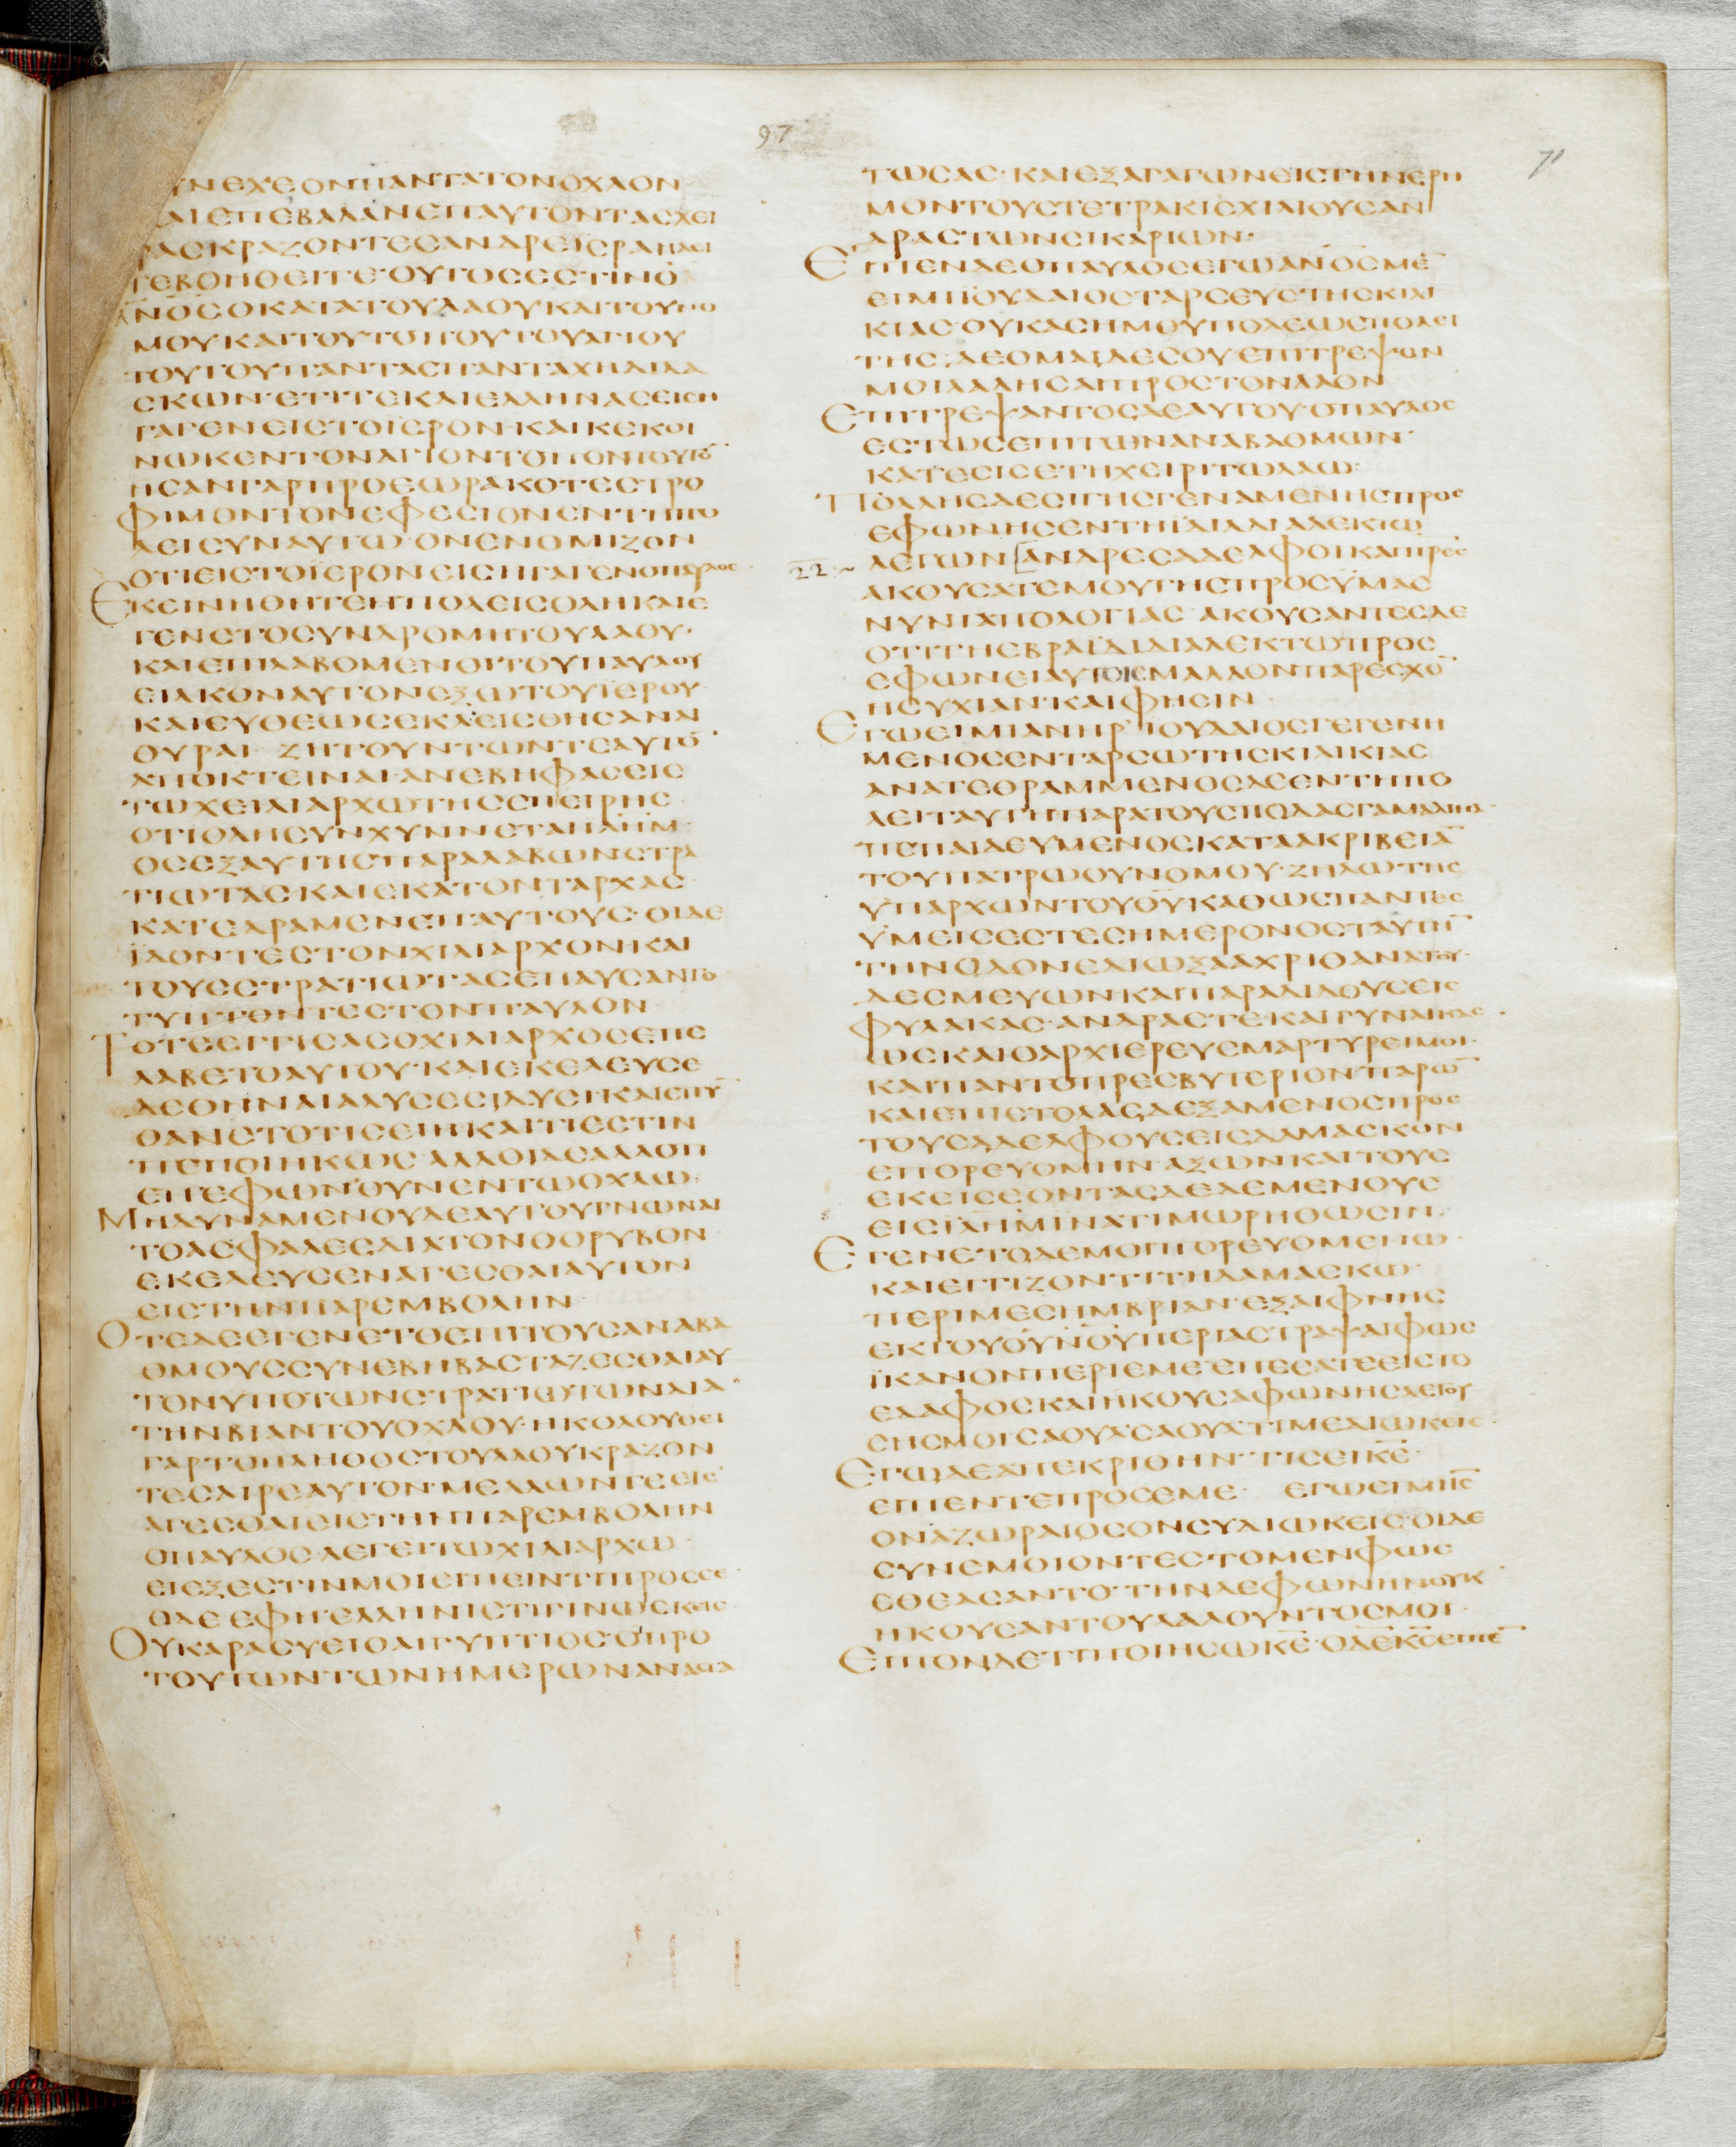 97
71
ΥΝΕΧΕΟΝΠΑΝΤΑΤΟΝΟΧΛΟΝ
ΑΙΕΠΕΒΑΛΑΝΕΠΑΥΤΟΝΤΑΣΧΕΙ
ΡΑΣΚΡΑΖΟΝΤΕΣΑΝΔΡΕΙΣΡΑΗΛΕΙ
ΤΕΒΟΗΘΕΙΤΕ·ΟΥΤΟΣΕΣΤΙΝΟ
ΑΝΟΣΟΚΑΤΑΤΟΥΛΑΟΥΚΑΙΤΟΥΝΟ
ΜΟΥΚΑΙΤΟΥΤΟΠΟΥΤΟΥΑΓΙΟΥ
ΤΟΥΤΟΥΠΑΝΤΑΣΠΑΝΤΑΧΗΔΙΔΑ
ΣΚΩΝ·ΕΤΙΤΕΚΑΙΕΛΛΗΝΑΣΕΙΣΗ
ΓΑΓΕΝΕΙΣΤΟΪΕΡΟΝ·ΚΑΙΚΕΚΟΙ
ΝΩΚΕΝΤΟΝΑΓΙΟΝΤΟΠΟΝΤΟΥΤΟ̅
ΗΣΑΝΓΑΡΠΡΟΕΩΡΑΚΟΤΕΣΤΡΟ
ΦΙΜΟΝΤΟΝΕΦΕΣΙΟΝΕΝΤΗΠΟ
ΛΕΙΣΥΝΑΥΤΩ·ΟΝΕΝΟΜΙΖΟΝ
ΟΤΙΕΙΣΤΟΪΕΡΟΝΕΙΣΗΓΑΓΕΝΟΠΑΥΛΟΣ·
ΕΚΕΙΝΗΘΗΤΕΗΠΟΛΕΙΣΟΛΗΚΑΙΕ
ΓΕΝΕΤΟΣΥΝΔΡΟΜΗΤΟΥΛΑΟΥ·
ΚΑΙΕΠΙΛΑΒΟΜΕΝΟΙΤΟΥΠΑΥΛΟΥ
ΕΙΛΚΟΝΑΥΤΟΝΕΞΩΤΟΥΪΕΡΟΥ
ΚΑΙΕΥΘΕΩΣΕΚΛΕΙΣΘΗΣΑΝΑΙ
ΘΥΡΑΙ ΖΗΤΟΥΝΤΩΝΤΕΑΥΤΟ̅
ΑΠΟΚΤΕΙΝΑΙ·ΑΝΕΒΗΦΑΣΕΙΣ
ΤΩΧΕΙΛΙΑΡΧΩΤΗΣΣΠΕΙΡΗΣ
ΟΤΙΟΛΗΣΥΝΧΥΝΝΕΤΑΙΗΙΛΗΜ·
ΟΣΕΞΑΥΤΗΣΠΑΡΑΛΑΒΩΝΣΤΡΑ
ΤΙΩΤΑΣ·ΚΑΙΕΚΑΤΟΝΤΑΡΧΑΣ
ΚΑΤΕΔΡΑΜΕΝΕΠΑΥΤΟΥΣ·ΟΙΔΕ
ΪΔΟΝΤΕΣΤΟΝΧΙΛΙΑΡΧΟΝ·ΚΑΙ
ΤΟΥΣΣΤΡΑΤΙΩΤΑΣΕΠΑΥΣΑΝΤΟ
ΤΥΠΤΟΝΤΕΣΤΟΝΠΑΥΛΟΝ
ΤΟΤΕΕΓΓΙΣΑΣΟΧΙΛΙΑΡΧΟΣΕΠΕ
ΛΑΒΕΤΟΑΥΤΟΥ·ΚΑΙΕΚΕΛΕΥΣΕ
ΔΕΘΗΝΑΙΑΛΥΣΕΣΙΔΥΣΙ·ΚΑΙΕΠΥ̅
ΘΑΝΕΤΟΤΙΣΕΙΗΚΑΙΤΙΕΣΤΙΝ
ΠΕΠΟΙΗΚΩΣ·ΑΛΛΟΙΔΕΑΛΛΟΤΙ
ΕΠΕΦΩΝΟΥΝΕΝΤΩΟΧΛΩ·
ΜΗΔΥΝΑΜΕΝΟΥΔΕΑΥΤΟΥΓΝΩΝΑΙ
ΤΟΑΣΦΑΛΕΣΔΙΑΤΟΝΘΟΡΥΒΟΝ
ΕΚΕΛΕΥΣΕΝΑΓΕΣΘΑΙΑΥΤΟΝ
ΕΙΣΤΗΝΠΑΡΕΜΒΟΛΗΝ
ΟΤΕΔΕΕΓΕΝΕΤΟΕΠΙΤΟΥΣΑΝΑΒΑ
ΘΜΟΥΣΣΥΝΕΒΗΒΑΣΤΑΖΕΣΘΑΙΑΥ
ΤΟΝΥΠΟΤΩΝΣΤΡΑΤΙΩΤΩΝΔΙΑ
ΤΗΝΒΙΑΝΤΟΥΟΧΛΟΥ·ΗΚΟΛΟΥΘΕΙ
ΓΑΡΤΟΠΛΗΘΟΣΤΟΥΛΑΟΥΚΡΑΖΟΝ
ΤΕΣΑΙΡΕΑΥΤΟΝ·ΜΕΛΛΩΝΤΕΕΙΣ
ΑΓΕΣΘΑΙΕΙΣΤΗΝΠΑΡΕΜΒΟΛΗΝ
ΟΠΑΥΛΟΣ·ΛΕΓΕΙΤΩΧΙΛΙΑΡΧΩ·
ΕΙΕΞΕΣΤΙΝΜΟΙΕΙΠΕΙΝΤΙΠΡΟΣΣΕ·
ΟΔΕΕΦΗ·ΕΛΛΗΝΙΣΤΙΓΙΝΩΣΚΕΙΣ·
ΟΥΚΑΡΑΣΥΕΙΟΑΙΓΥΠΤΙΟΣ·ΟΠΡΟ
ΤΟΥΤΩΝΤΩΝΗΜΕΡΩΝΑΝΑΣΤΑ
ΤΩΣΑΣ·ΚΑΙΕΞΑΓΑΓΩΝΕΙΣΤΗΝΕΡΗ
ΜΟΝΤΟΥΣΤΕΤΡΑΚΙΣΧΙΛΙΟΥΣΑΝ
ΔΡΑΣΤΩΝΣΙΚΑΡΙΩΝ·
ΕΙΠΕΝΔΕΟΠΑΥΛΟΣΕΓΩΑΝΟΣΜΕ̅
ΕΙΜΙΙΟΥΔΑΙΟΣΤΑΡΣΕΥΣΤΗΣΚΙΛΙ
ΚΙΑΣ·ΟΥΚΑΣΗΜΟΥΠΟΛΕΩΣΠΟΛΕΙ
ΤΗΣ·ΔΕΟΜΑΙΔΕΣΟΥΕΠΙΤΡΕΨΟΝ
ΜΟΙΛΑΛΗΣΑΙΠΡΟΣΤΟΝΛΑΟΝ
ΕΠΙΤΡΕΨΑΝΤΟΣΔΕΑΥΤΟΥ·ΟΠΑΥΛΟΣ
ΕΣΤΩΣΕΠΙΤΩΝΑΝΑΒΑΘΜΩΝ·
ΚΑΤΕΣΙΣΕΤΗΧΕΙΡΙΤΩΛΑΩ·
ΠΟΛΛΗΣΔΕΣΙΓΗΣΓΕΝΑΜΕΝΗΣΠΡΟΣ
ΕΦΩΝΗΣΕΝΤΗΪΔΙΑΔΙΑΛΕΚΤΩ
22 ΛΕΓΩΝ[ΑΝΔΡΕΣΑΔΕΛΦΟΙΚΑΙΠΡΕΣ
ΑΚΟΥΣΑΤΕΜΟΥΤΗΣΠΡΟΣΫΜΑΣ
ΝΥΝΙΑΠΟΛΟΓΙΑΣ·ΑΚΟΥΣΑΝΤΕΣΔΕ
ΟΤΙΤΗΕΒΡΑΪΔΙΔΙΑΛΕΚΤΩΠΡΟΣ
ΕΦΩΝΕΙΑΥΤΟΙΣΜΑΛΛΟΝΠΑΡΕΣΧΟ̅
ΗΣΥΧΙΑΝ·ΚΑΙΦΗΣΙΝ·
ΕΓΩΕΙΜΙΑΝΗΡΪΟΥΔΑΙΟΣΓΕΓΕΝΗ
ΜΕΝΟΣΕΝΤΑΡΣΩΤΗΣΚΙΛΙΚΙΑΣ
ΑΝΑΤΕΘΡΑΜΜΕΝΟΣΔΕΕΝΤΗΠΟ
ΛΕΙΤΑΥΤΗΠΑΡΑΤΟΥΣΠΟΔΑΣΓΑΜΑΛΙΗΛ·
ΠΕΠΑΙΔΕΥΜΕΝΟΣΚΑΤΑΑΚΡΙΒΕΙΑ̅
ΤΟΥΠΑΤΡΩΟΥΝΟΜΟΥ·ΖΗΛΩΤΗΣ
ΫΠΑΡΧΩΝΤΟΥΘ̅Υ̅ΚΑΘΩΣΠΑΝΤΕΣ
ΫΜΕΙΣΕΣΤΕΣΗΜΕΡΟΝΟΣΤΑΥΤΗ̅
ΤΗΝΟΔΟΝΕΔΙΩΞΑΑΧΡΙΘΑΝΑΤΟΥ·
ΔΕΣΜΕΥΩΝ·ΚΑΙΠΑΡΑΔΙΔΟΥΣΕΙΣ
ΦΥΛΑΚΑΣ·ΑΝΔΡΑΣΤΕ·ΚΑΙΓΥΝΑΙΚΑΣ·
ΩΣΚΑΙΟΑΡΧΙΕΡΕΥΣΜΑΡΤΥΡΕΙΜΟΙ·
ΚΑΙΠΑΝΤΟΠΡΕΣΒΥΤΕΡΙΟΝΠΑΡΩ̅
ΚΑΙΕΠΙΣΤΟΛΑΣΔΕΞΑΜΕΝΟΣΠΡΟΣ
ΤΟΥΣΑΔΕΛΦΟΥΣΕΙΣΔΑΜΑΣΚΟΝ
ΕΠΟΡΕΥΟΜΗΝ·ΑΞΩΝΚΑΙΤΟΥΣ
ΕΚΕΙΣΕΟΝΤΑΣΔΕΔΕΜΕΝΟΥΣ
ΕΙΣΪΛΗΜΙΝΑΤΙΜΩΡΗΘΩΣΙΝ·
ΕΓΕΝΕΤΟΔΕΜΟΙΠΟΡΕΥΟΜΕΝΩ·
ΚΑΙΕΓΓΙΖΟΝΤΙΤΗΔΑΜΑΣΚΩ·
ΠΕΡΙΜΕΣΗΜΒΡΙΑΝ·ΕΞΑΙΦΝΗΣ
ΕΚΤΟΥΟΥΝΟΥΠΕΡΙΑΣΤΡΑΨΑΙΦΩΣ
ΪΚΑΝΟΝΠΕΡΙΕΜΕ·ΕΠΕΣΑΤΕΕΙΣΤΟ
ΕΔΑΦΟΣΚΑΙΗΚΟΥΣΑΦΩΝΗΣΛΕΓΟΥ
ΣΗΣΜΟΙΣΑΟΥΛΣΑΟΥΛΤΙΜΕΔΙΩΚΕΙΣ·
ΕΓΩΔΕΑΠΕΚΡΙΘΗΝ·ΤΙΣΕΙΚ̅Ε̅·
ΕΙΠΕΝΤΕΠΡΟΣΕΜΕ· ΕΓΩΕΙΜΙΙ̅Σ̅
ΟΝΑΖΩΡΑΙΟΣΟΝΣΥΔΙΩΚΕΙΣ·ΟΙΔΕ
ΣΥΝΕΜΟΙΟΝΤΕΣ·ΤΟΜΕΝΦΩΣ
ΕΘΕΑΣΑΝΤΟ·ΤΗΝΔΕΦΩΝΗΝΟΥΚ
ΗΚΟΥΣΑΝΤΟΥΛΑΛΟΥΝΤΟΣΜΟΙ·
ΕΙΠΟΝΔΕΤΙΠΟΙΗΣΩΚ̅Ε̅·ΟΔΕΚ̅Σ̅ΕΙΠΕ̅